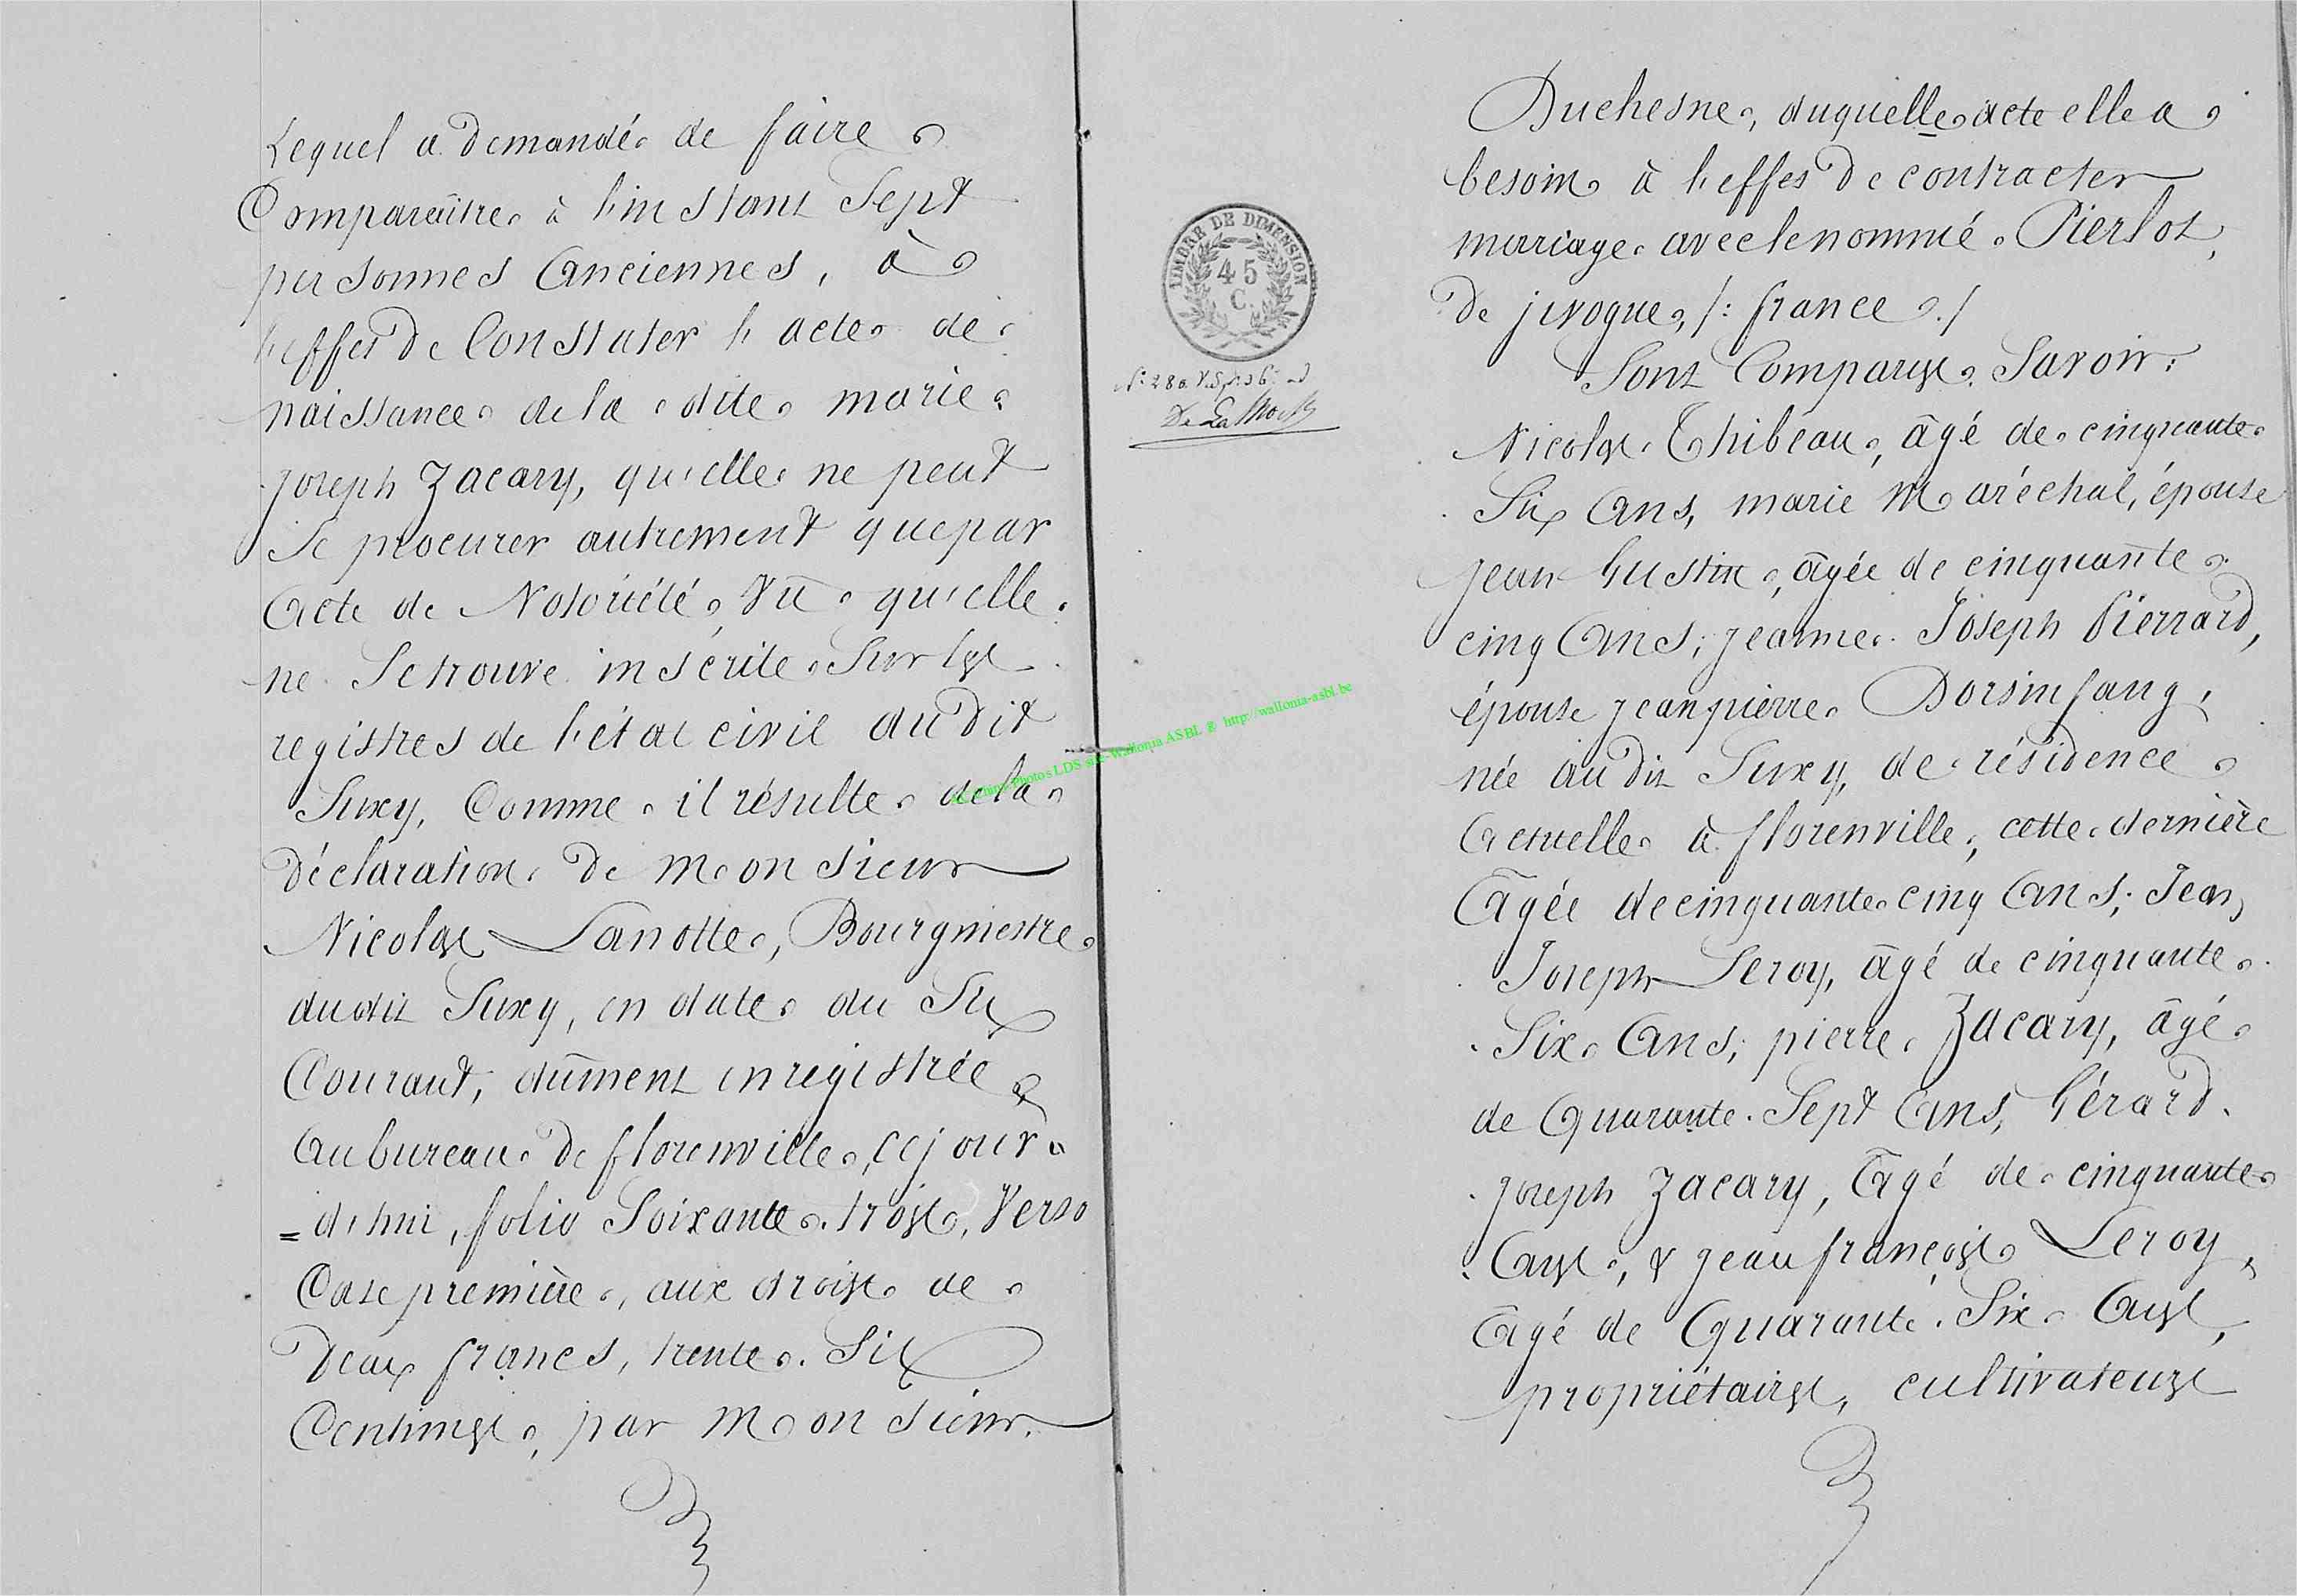 Lequel a demandé de faire
Comparaître à l'instant Sept
personnes Anciennes, à
l'effet de Constater l'acte de
naissance de la dite marie
joseph Zacary, qu'elle ne peut
Se procurer autrement que par
Acte de Notoriété, Vû qu'elle
ne Se trouve inscrite Sur les
registres de l'état civil du dit
Suxy, Comme il résulte de la
déclaration de Monsieur
Nicolas Lanotte, Bourgmestre
dudit Suxy, en date du Six
Courant, dûment enregistrée
Au bureau de florenville, ce jour
= d'hui, folio Soixante trois, Verso
Case première, aux droits de
Deux francs, trente Six
Centimes, par Monsieur
TIMBRE DE DIMENSION
45
C.
De La
Duchesne, duquelle acte elle a
besoin à l'effet de contracter
marriage avec le nommé Pierlot,
de jivogue, /: france ./
Sont Comparus Savoir:
Nicolas Thibeau, âgé de cinquante
Six Ans, marie Maréchal, épouse
jean Gustin, âgée de cinquante
cinq Ans; jeanne Joseph Pierrard,
épouse jeanpierre Dorsinfang,
née audit Suxy, de résidence
Actuelle à florenville, cette dernière
Agée de cinquante cinq Ans; Jean
Joseph Leroy, âgé de cinquante
Six Ans; pierre Zacary, âgé
de Quarante Sept Ans, Gérard
joseph Zacary, Agé de cinquante
Ans, & jean françois Leroy,
Agé de Quarante Six Ans,
propriétaires, cultivateurs
Photos LDS site-Wallonia ASBL @ http://wallonia-asbl.be